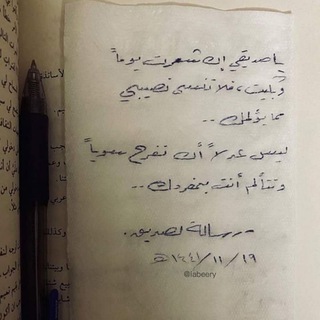 يا صديقي إن شعرت يوماً
وبليت، فلا تنسى نصيبي
مما يؤلمك ..
ليس عدلاً أن نفرح سوياً
وتتألم أنت بمفردك ..
- رسالة لصديق.
١٩ / ١١ / ١٤٤١ هـ
@labeery